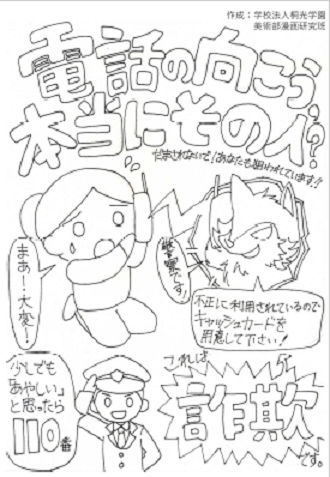 作成：学校法人桐光学園
美術部漫画研究班
電話の向こう、
本当にその人？
だまされないで！あなたも狙われています!!
まあ！大変！
警察です！
不正に利用されているので
キャッシュカードを
用意して下さい！
少しでも
「あやしい」
と思ったら
110番
これは
詐欺
です。